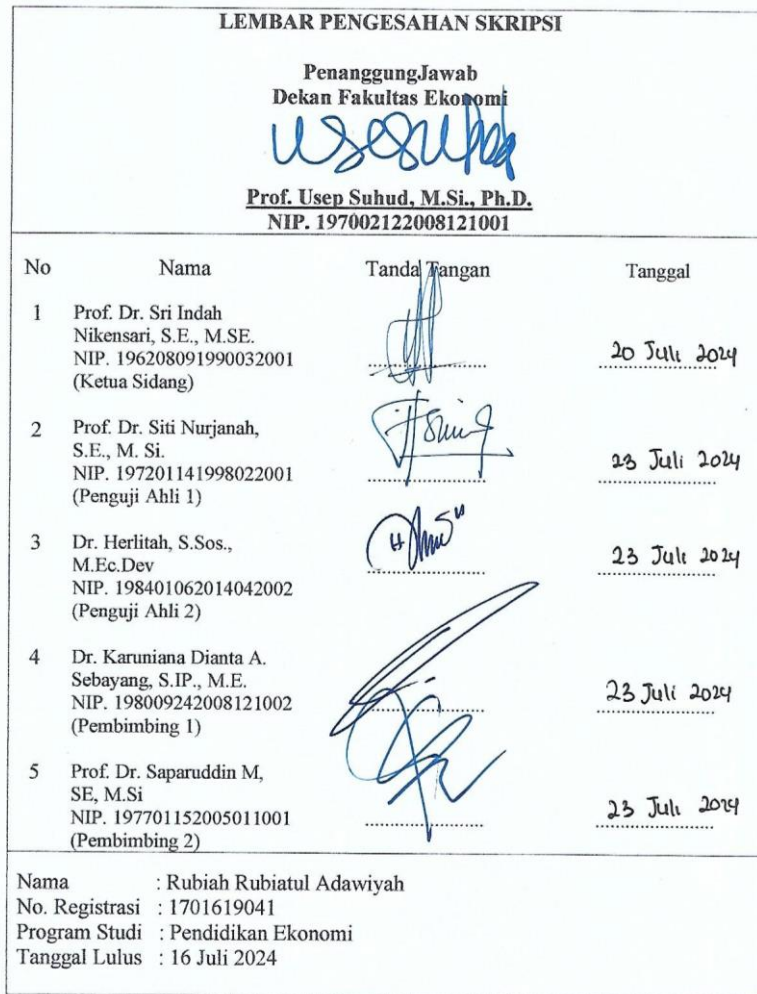 LEMBAR PENGESAHAN SKRIPSI
PenanggungJawab
Dekan Fakultas Ekonomi
Prof. Usep Suhud, M.Si., Ph.D.
NIP. 197002122008121001
No Nama Tanda Tangan Tanggal
1 Prof. Dr. Sri Indah
Nikensari, S.E., M.SE.
NIP. 196208091990032001 .................... 20 Juli 2024
(Ketua Sidang)
2 Prof. Dr. Siti Nurjanah,
S.E., M. Si.
NIP. 197201141998022001 .................... 23 Juli 2024
(Penguji Ahli 1)
3 Dr. Herlitah, S.Sos.,
M.Ec.Dev .................... 23 Juli 2024
NIP. 198401062014042002
(Penguji Ahli 2)
4 Dr. Karuniana Dianta A.
Sebayang, S.IP., M.E.
NIP. 198009242008121002 .................... 23 Juli 2024
(Pembimbing 1)
5 Prof. Dr. Saparuddin M,
SE, M.Si
NIP. 197701152005011001 .................... 23 Juli 2024
(Pembimbing 2)
Nama : Rubiah Rubiatul Adawiyah
No. Registrasi : 1701619041
Program Studi : Pendidikan Ekonomi
Tanggal Lulus : 16 Juli 2024